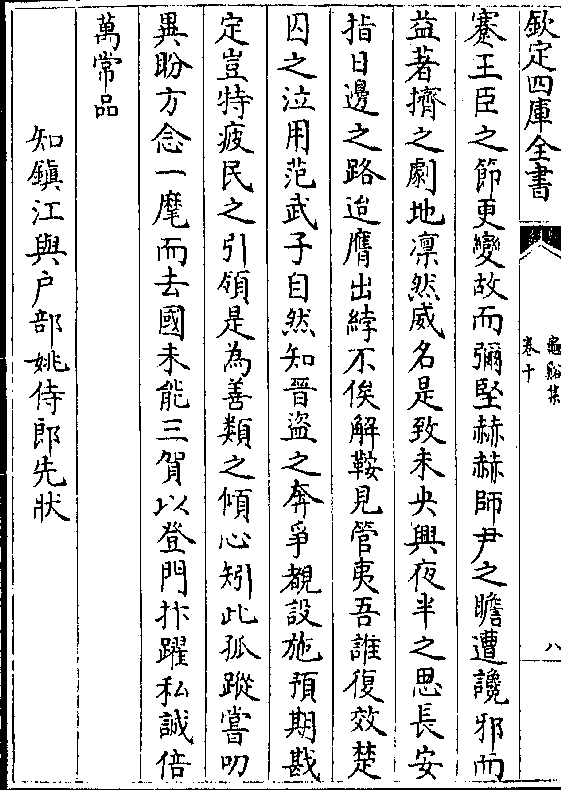 欽定四庫全書
龜谿集
卷十
八
蹇王臣之節更變故而彌堅赫赫師尹之瞻遭讒邪而
益著擠之劇地凛然威名是致未央興夜半之思長安
指日邊之路迨膺出綍不俟解鞍見管夷吾誰復效楚
囚之泣用范武子自然知晋盗之奔爭覩設施預期戡
定豈特疲民之引領是為善類之傾心矧此孤蹤嘗叨
異盼方念一麾而去國未能三賀以登門抃躍私誠倍
萬常品
知鎮江與户部姚侍郎先狀